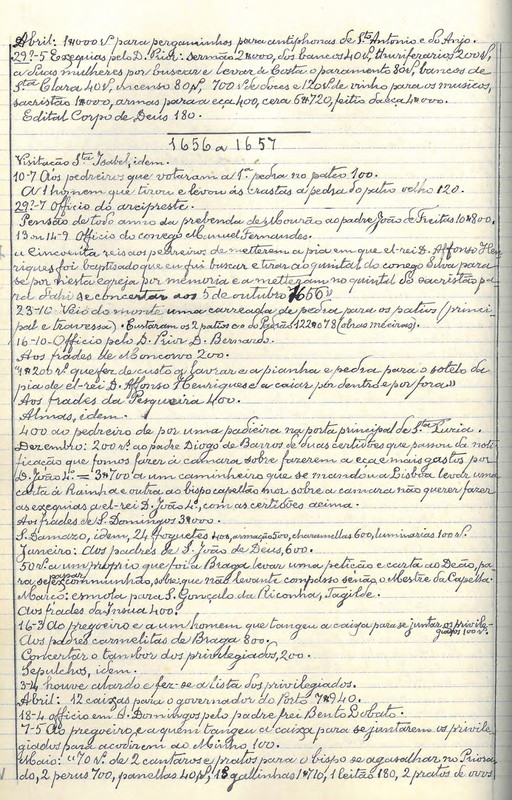 Abril: 1#000 rs para pergaminhos para antiphonas de Sto Antonio e do Anjo.
29-5 Exequias pelo D. Prior: sermão 2#000, dos bancos 40 rs, thuriferarios 200 rs,
a duas mulheres por buscar e levar á Costa o paramento 80 rs, bancos de
Sta Clara 40 rs, incenso 80 rs, 700 rs de doces e 120 rs de vinho para os musicos,
sacristão 1#000, armas para a eça 400, cera 6#720, feitio da eça 4#000.
Edital Corpo de Deus 180.
1656 a 1657
Visitação Sta Isabel, idem.
10-7 Aos pedreiros que votaram a 1ª pedra no pateo 100.
A 1 homem que tirou e levou ás crastas a pedra do patio velho 120.
29-7 Officio do arcipreste.
Pensão de todo anno da prebenda de Mourão ao padre João de Freitas 10#800.
13 ou 14-9 Officio do conego Manuel Fernandes.
"Cincoenta reis aos pedreiros de metterem a pia em que el-rei D. Affonso Hen-
riques foi baptisado que eu fui buscar e tirar do quintal do conego Silva para
se pôr nesta egreja por memoria e a metteram no quintal do sacristão pa-
ra dahi se concertar aos 5 de outubro 1656"
23-10 Veio do monte uma carreada de pedra para os pateos (princi-
pal e travessa). Custaram os 2 pateos e o do Paixão 122#078 (obras meúras).
16-10- Officio pelo D. Prior D. Bernardo.
Aos frades de Moncorvo 200.
"1#200 rs que fez de custo a lavrar e a pianha e pedra para o sotelo da
pia de el-rei D. Affonso Henriques e a caiar por dentro e por fora"
Aos frades da Pesqueira 400.
Almas, idem.
400 ao pedreiro de por uma padieira na porta principal de Sta Luzia.
Dezembro: 200 rs ao padre Diogo de Barros de duas certidões que passou da noti-
ficação que fomos fazer á camara sobre fazerem a eça e mais gastos por
D. João 4º = 3#700 a um caminheiro que se mandou a Lisboa levar uma
carta á Rainha e outra ao bispo capellão mor sobre a camara não querer fazer
as exequias a el-rei D. João 4º, com as certidões acima.
Aos frades de S. Domingos 3#000.
S. Damazo, idem, 24 foguetes 408, armação 500, charamellas 600, luminarias 100 rs.
Janeiro: Aos padres de S. João de Deus, 600.
50 rs a um proprio que foi a Braga levar uma petição e carta ao Deão, pa-
ra se passar excommunhão, sobre que não levante compasso senão o Mestre da Capella.
Março: esmola para S. Gonçalo da Riconha, Tagilde.
Aos frades da Insua 400.
16-3 Ao pregoeiro e a um homem que tangeu a caixa para se juntar os privile-
giados 100 rs.
Aos padres carmelitas de Braga 800.
Concertar o tambor dos privilegiados, 200.
Sepulchos, idem.
3-4 houve alardo e fez-se a lista dos privilegiados.
Abril: 12 caixas para o governador do Porto 7#940.
18-4 officio em S. Domingos pelo padre frei Bento Lobato.
7-5 Ao pregoeiro, e a quem tangeu a caixa para se juntarem os privile-
giados para acodirem ao Minho, 100.
Maio: "70 rs de 2 cantaros e pratos para o bispo se agasalhar no Priora-
do, 2 perus 700, panellas 40 rs, 18 gallinhas 1#710, 1 leitão 180, 2 pratos de ovos